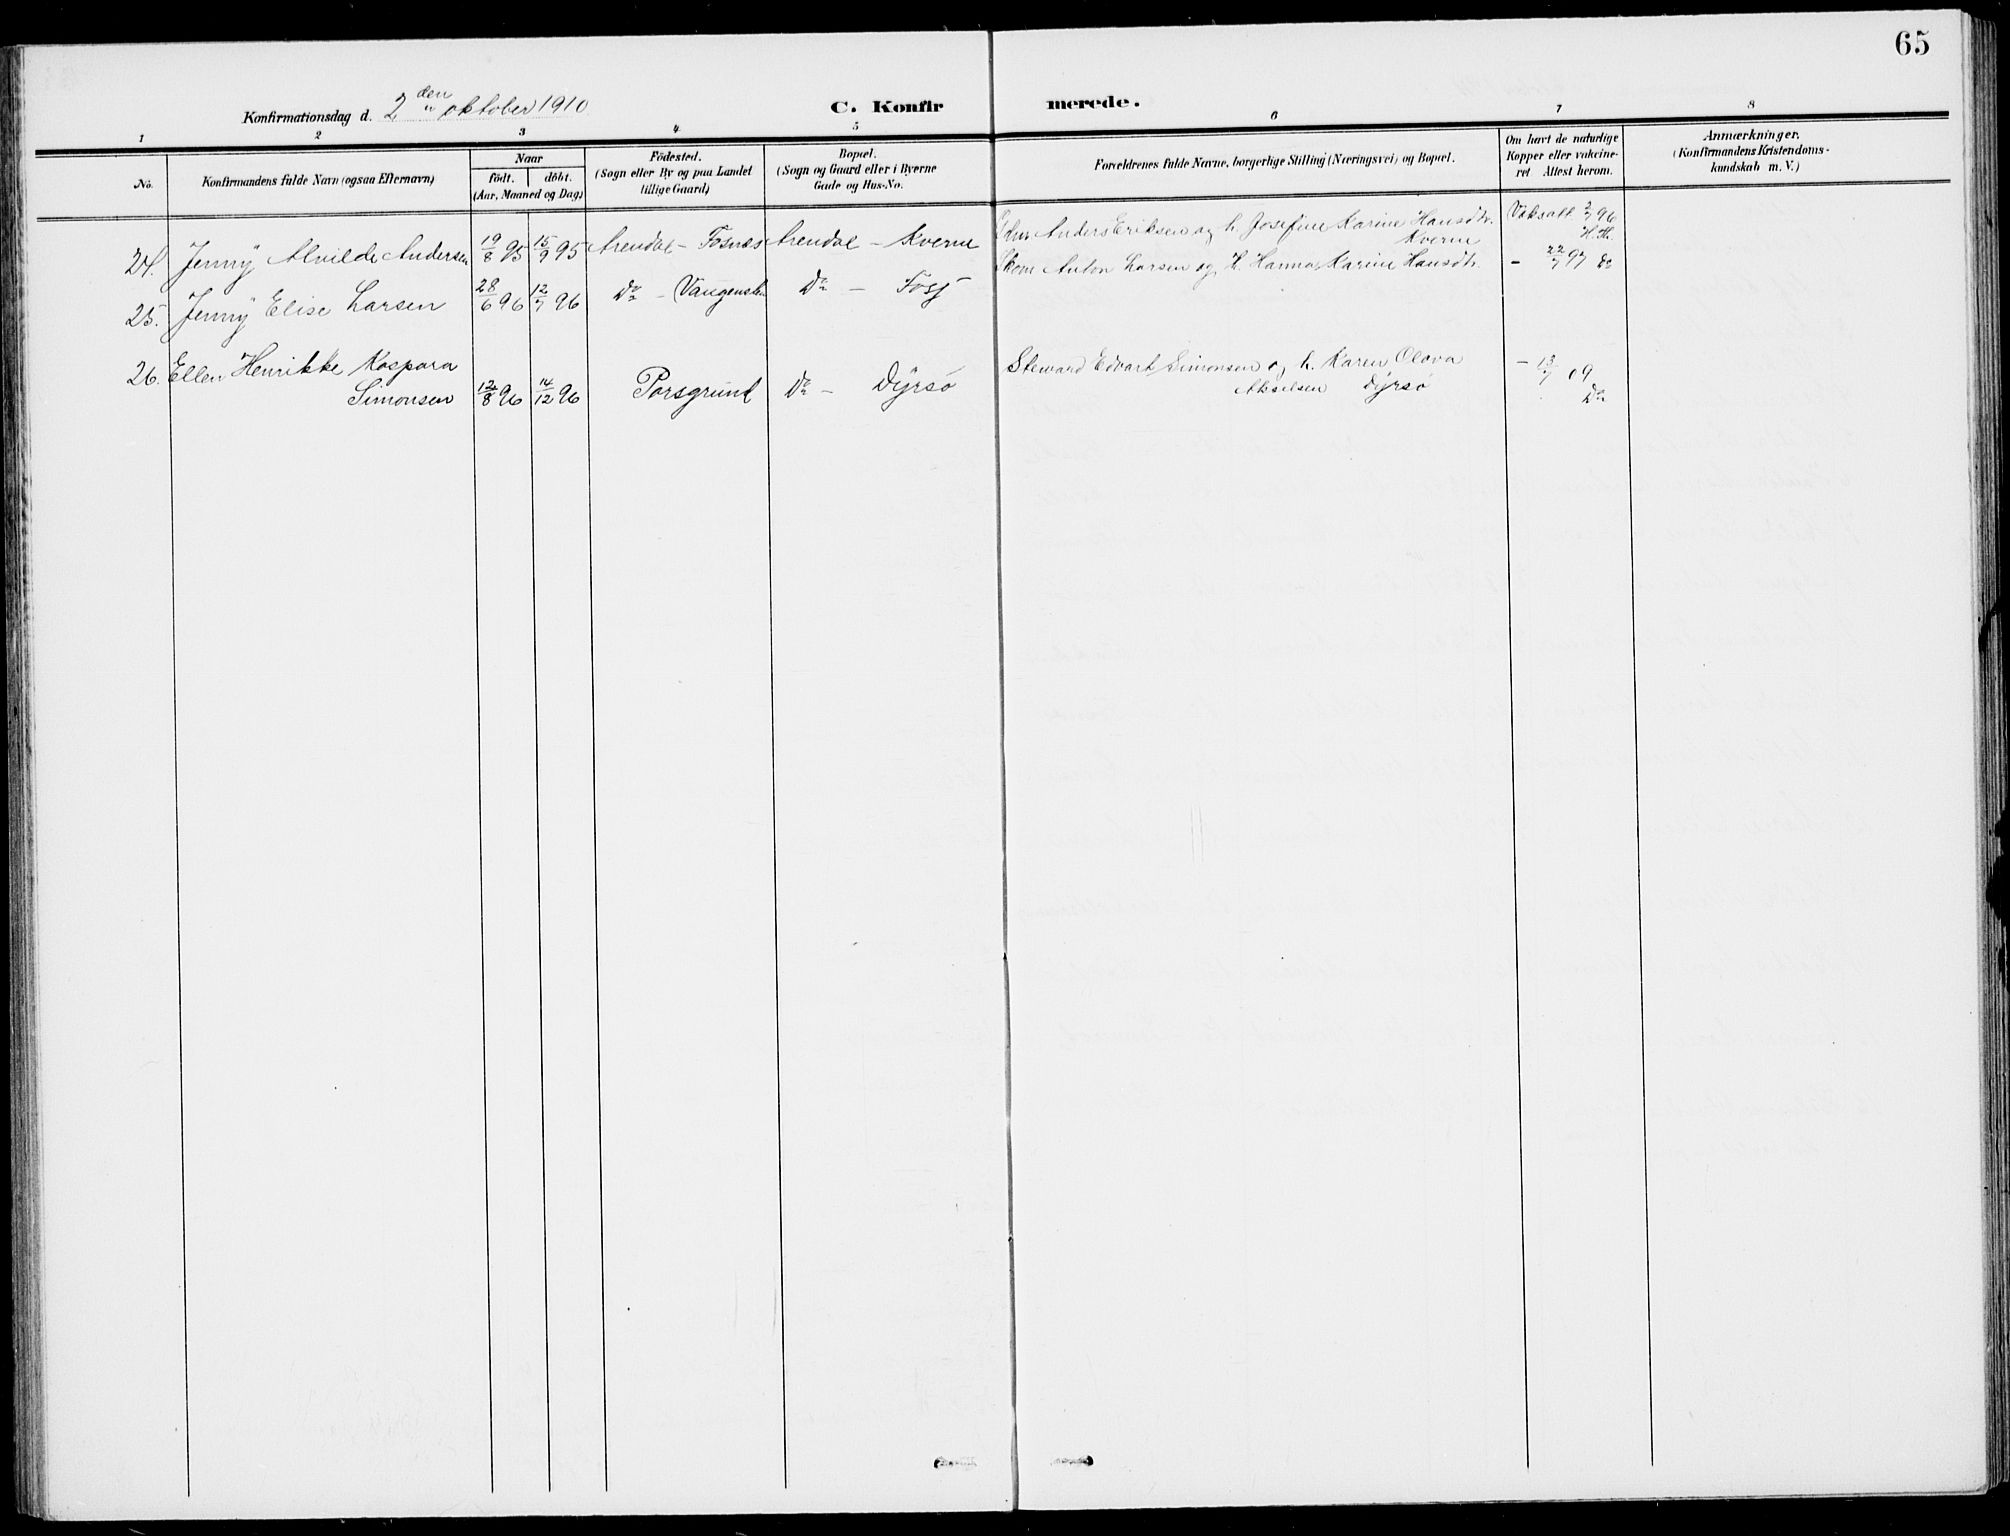 65
Konfirmationsdag d. 2den oktober 1910 C. Konfirmerede.
1 2 3 4 5 6 7 8
No. Konfirmandens fulde Navn (ogsaa Efternavn) Naar födt. döbt. (Aar, Maaned og Dag) Födested. (Sogn eller By og paa Landet tillige Gaard) Bopæl. (Sogn og Gaard eller i Byerne Gade og Hus-No. Forældrenes fulde Navne, borgerlige Stilling (Næringsvei) og Bopæl. Om havt de naturlige Kopper eller vakcineret Attest herom. Anmærkninger. (Konfirmandens Kristendomskundskab m. V.)
24. Jenny Alvilde Andersen 19/8 95 15/9 95 Arendal - Fosnæs Arendal - Kverne Anders Eriksen og h. Josefine Karine Hansdtr. Kverne Vaksatt. 2/7 96 H.Th.
25. Jenny Elise Larsen 28/6 96 12/7 96 Do - Vangensten Do - Fosj Skom Anton Larsen og h. Hanna Karine Hansdtr. - 22/7 97 Do
26. Ellen Henrikke Kaspara
Simonsen 12/8 96 14/12 96 Porsgrund Do - Dyrsö Steward Edvart Simonsen og h. Karen Olava
Akselsen Dyrsö - 13/7 09 Do